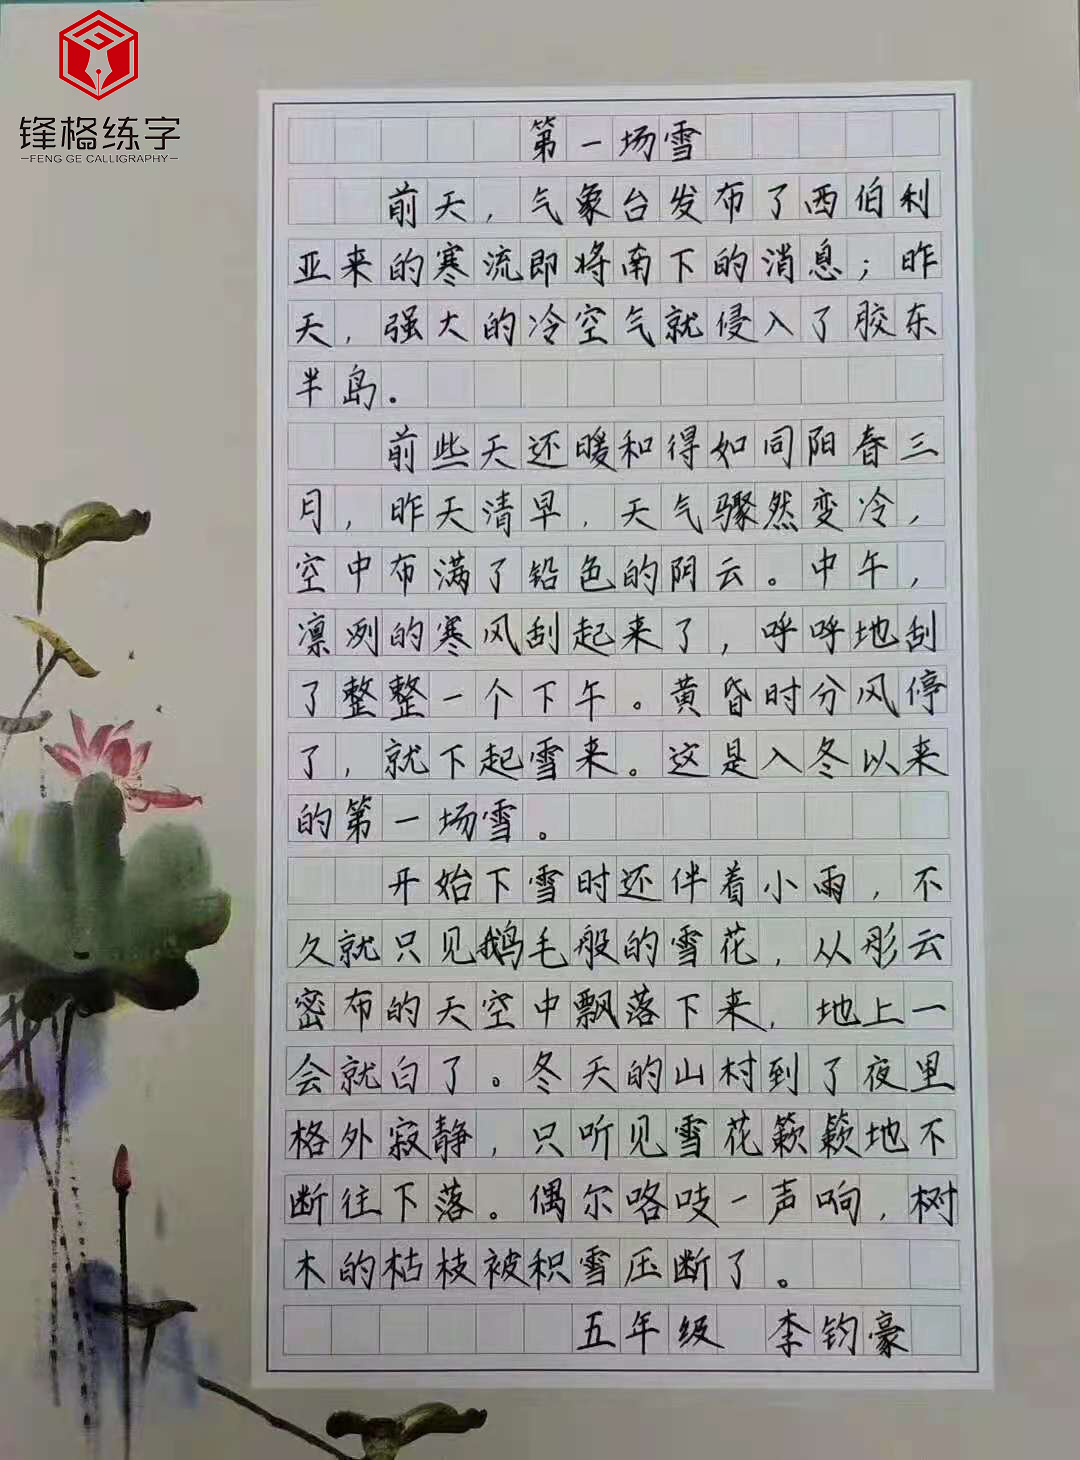 锋格练字
FENG GE CALLIGRAPHY
第一场雪
前天，气象台发布了西伯利
亚来的寒流即将南下的消息；昨
天，强大的冷空气就侵入了胶东
半岛。
前些天还暖和得如同阳春三
月，昨天清早，天气骤然变冷，
空中布满了铅色的阴云。中午，
凛冽的寒风刮起来了，呼呼地刮
了整整一个下午。黄昏时分风停
了，就下起雪来。这是入冬以来
的第一场雪。
开始下雪时还伴着小雨，不
久就只见鹅毛般的雪花，从彤云
密布的天空中飘落下来，地上一
会就白了。冬天的山村到了夜里
格外寂静，只听见雪花簌簌地不
断往下落。偶尔咯吱一声响，树
木的枯枝被积雪压断了。
五年级 李钧豪